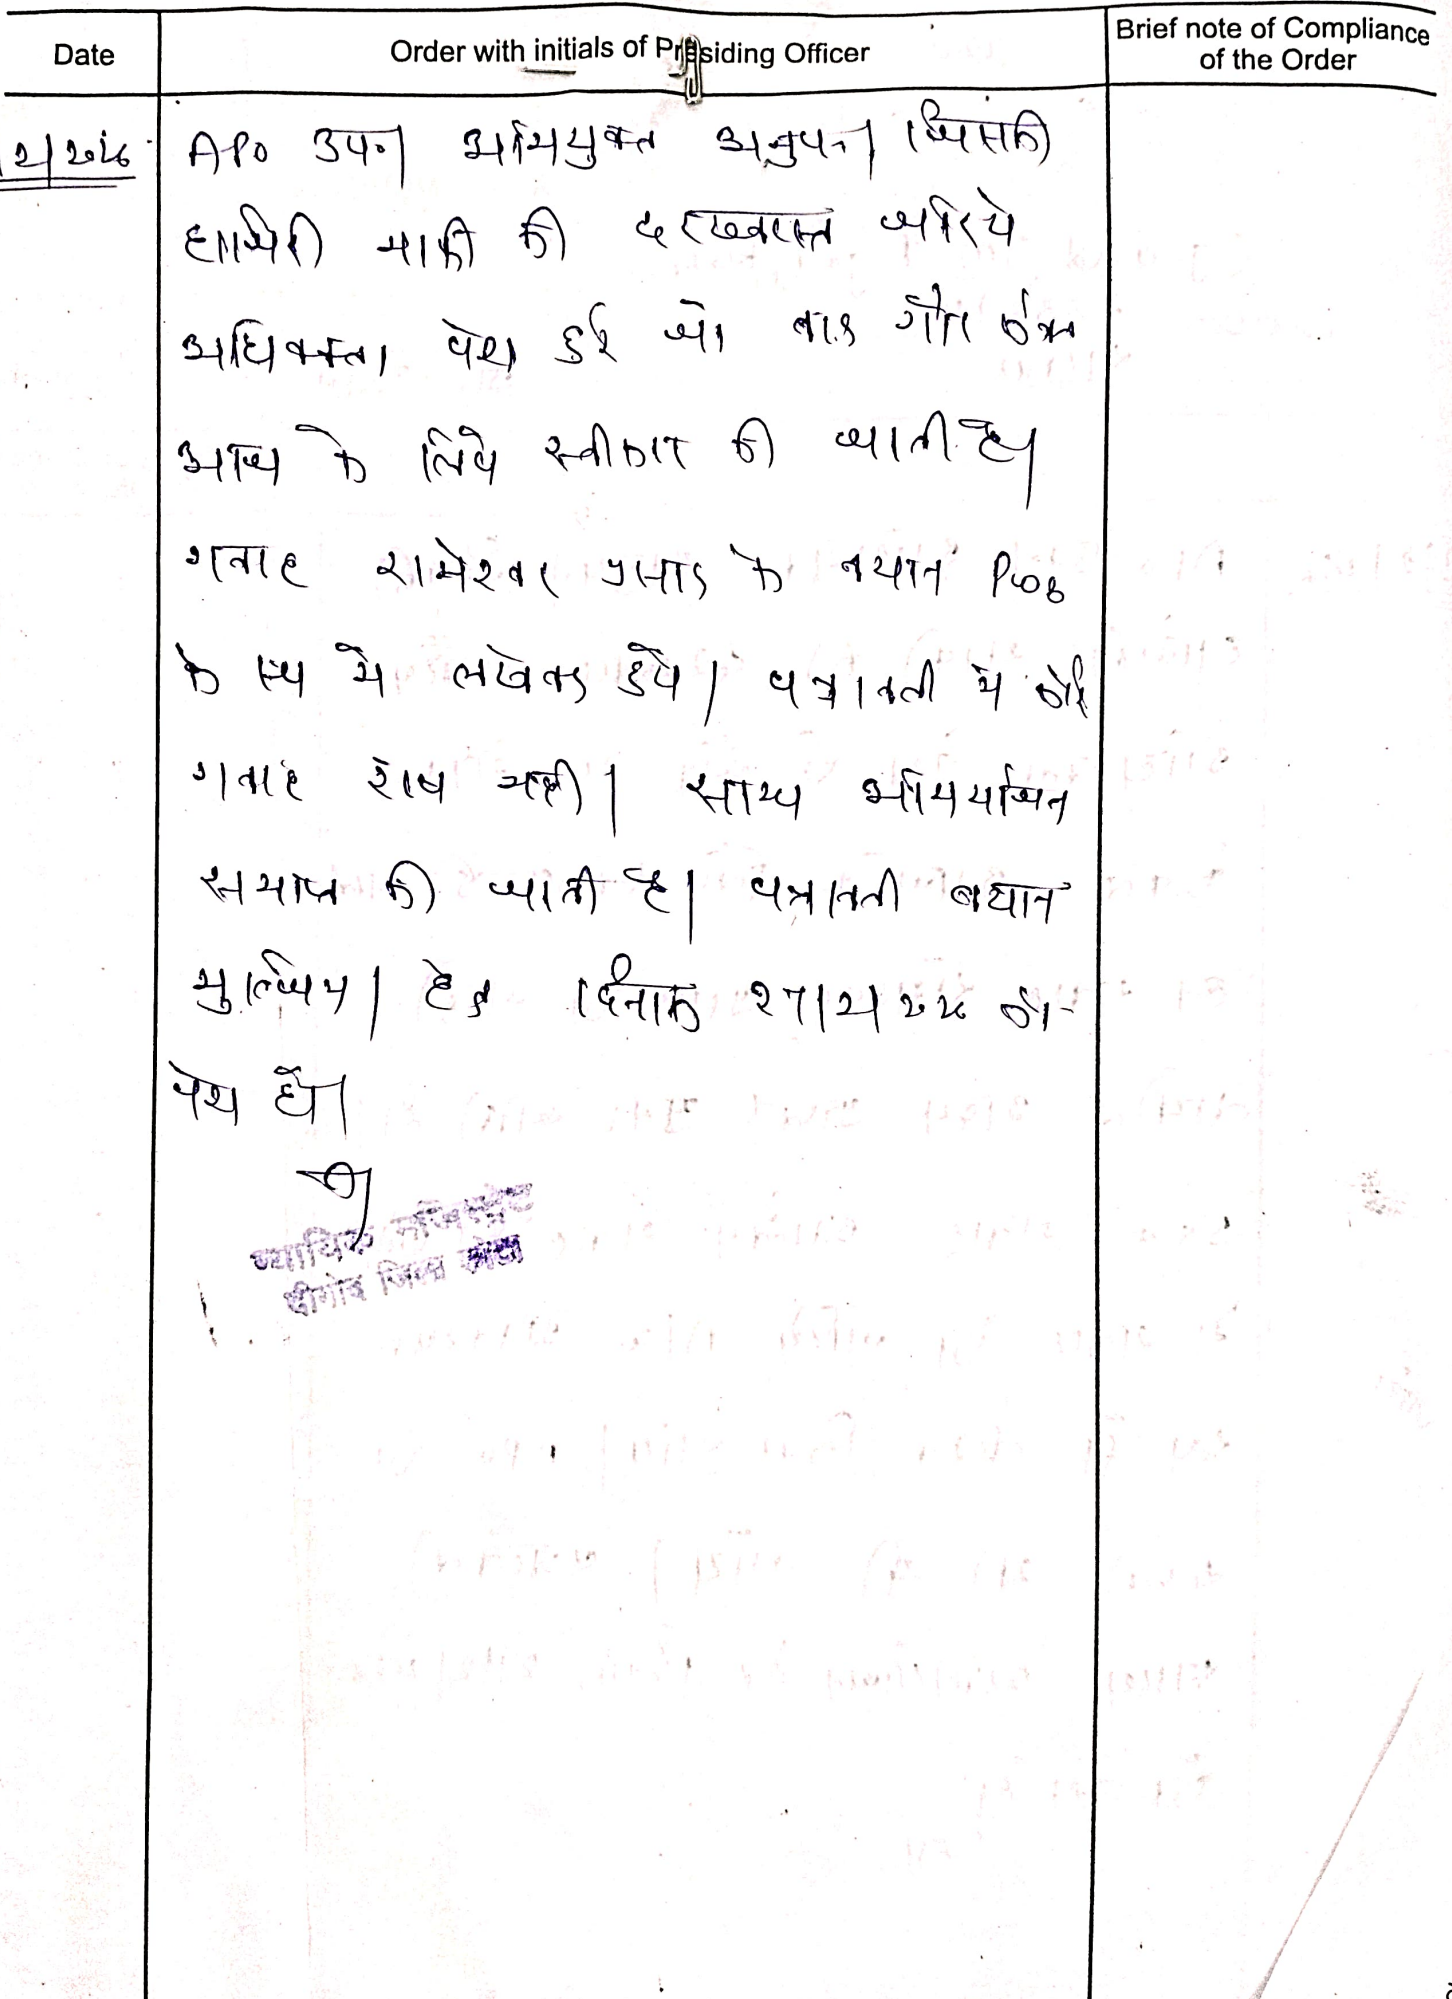 Date
Order with initials of Presiding Officer
Brief note of Compliance
of the Order
APO उप०। अभियुक्त अनुप०। जिसकी
हाजिरी माफी की दरख्वास्त जरिये
अधिवक्ता पेश हुई जो बाद गौर
आज के लिये स्वीकार की जाती है।
गवाह रामेश्वर प्रसाद के बयान
के रूप में लेखबद्ध हुये। पत्रावली में कोई
गवाह शेष नहीं। साक्ष्य अभियोजन
समाप्त की जाती है। पत्रावली बयान
मुल्जिम। हेतु दिनांक को
पेश हो।
न्यायिक मजिस्ट्रेट
दीगोद जिला कोटा